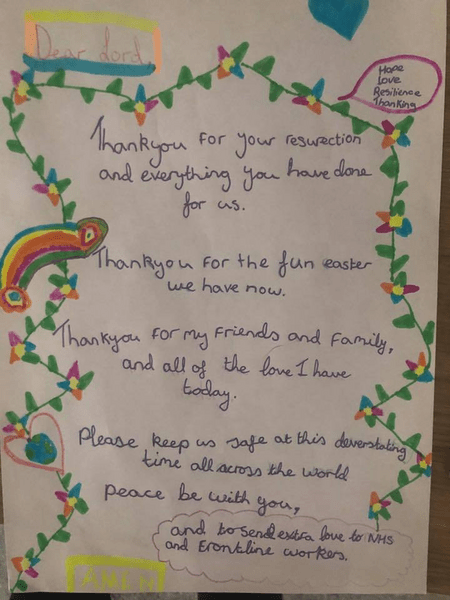 Dear Lord,
Hope
Love
Resilience
Thanking
Thankyou for your resurection
and everything you have done
for us.
Thankyou for the fun easter
we have now.
Thankyou for my friends and family,
and all of the love I have
today.
Please keep us safe at this deverstating
time all across the world
peace be with you,
and to send extra love to NHS
and Frontline workers.
AMEN